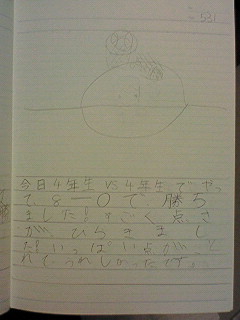 今日4年生VS4年生でやっ
て、8-0で勝ち
ました。すごく点さ
が、ひらきまし
た。いっぱい点が
れて、うれしかったです。